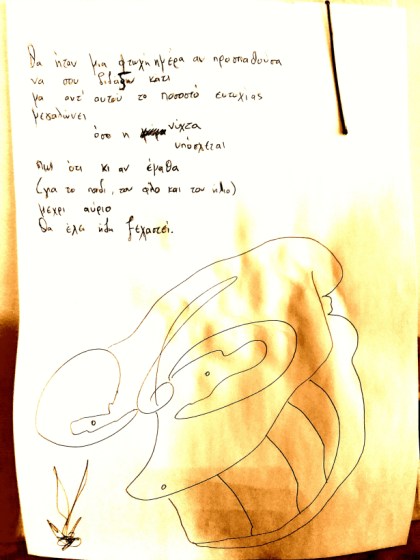 Θα ήταν μια φτωχή ημέρα αν προσπαθούσα
να σου διδάξω κάτι
μα αντ' αυτού το ποσοστό ευτυχίας
μεγαλώνει
όσο η νύχτα
υπόσχεται
πως ότι κι αν έμαθα
(για το ποδι, τον φίλο και τον ήλιο)
μέχρι αύριο
θα έχει ήδη ξεχαστεί.